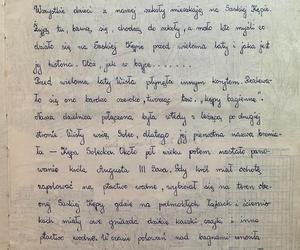 Wszystkie dzieci z naszej szkoły mieszkają na Saskiej Kępie.
Żyją tu, bawią się, chodzą do szkoły, a mało kto myśli co
działo się na Saskiej Kępie przed wieloma laty i jaka jest
jej historia. Otóż, jak w bajce......
Przed wieloma laty Wisła płynęła innym korytem. Rozlewa-
ło się ono bardzo szeroko, tworząc tzw. „kępy bagienne."
Nasza dzielnica połączona była wtedy z leżącą po drugiej
stronie Wisły wsią Solec, dlatego jej pierwotna nazwa brzmia-
ła – Kępa Solecka. Około pół wieku potem nastało pano-
wanie króla Augusta III Sasa. Gdy król miał ochotę
zapolować na ptactwo wodne, wybierał się na teren obe-
cnej Saskiej Kępy gdzie na podmokłych łąkach i ścierni-
kach miały swe gniazda dzikie kaczki czajki i inne
ptactwo wodne. W czasie polowań nad bagnami unosiła